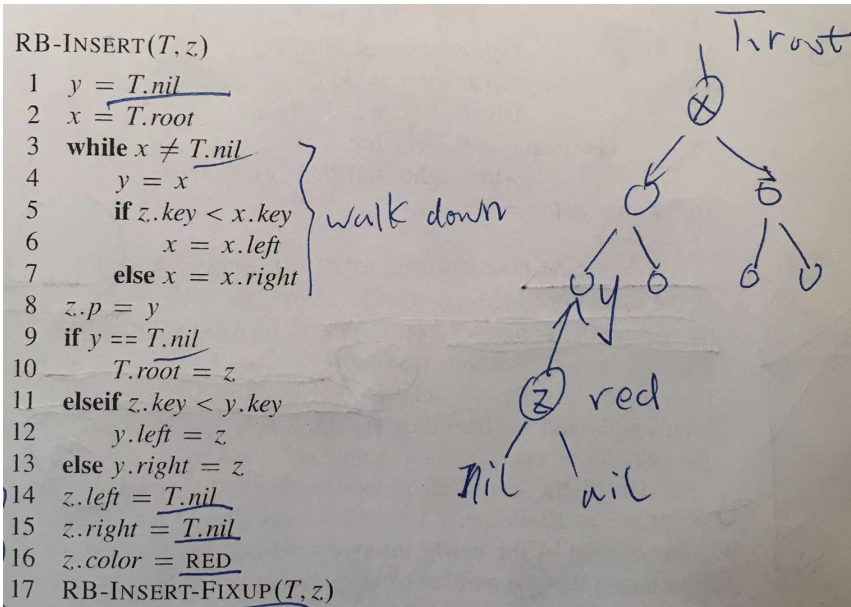 RB-INSERT(T, z)
1 y = T.nil
2 x = T.root
3 while x ≠ T.nil
4 y = x
5 if z.key < x.key
6 x = x.left
7 else x = x.right
8 z.p = y
9 if y == T.nil
10 T.root = z
11 elseif z.key < y.key
12 y.left = z
13 else y.right = z
14 z.left = T.nil
15 z.right = T.nil
16 z.color = RED
17 RB-INSERT-FIXUP(T, z)
walk down
T.root
x
y
z red
nil nil